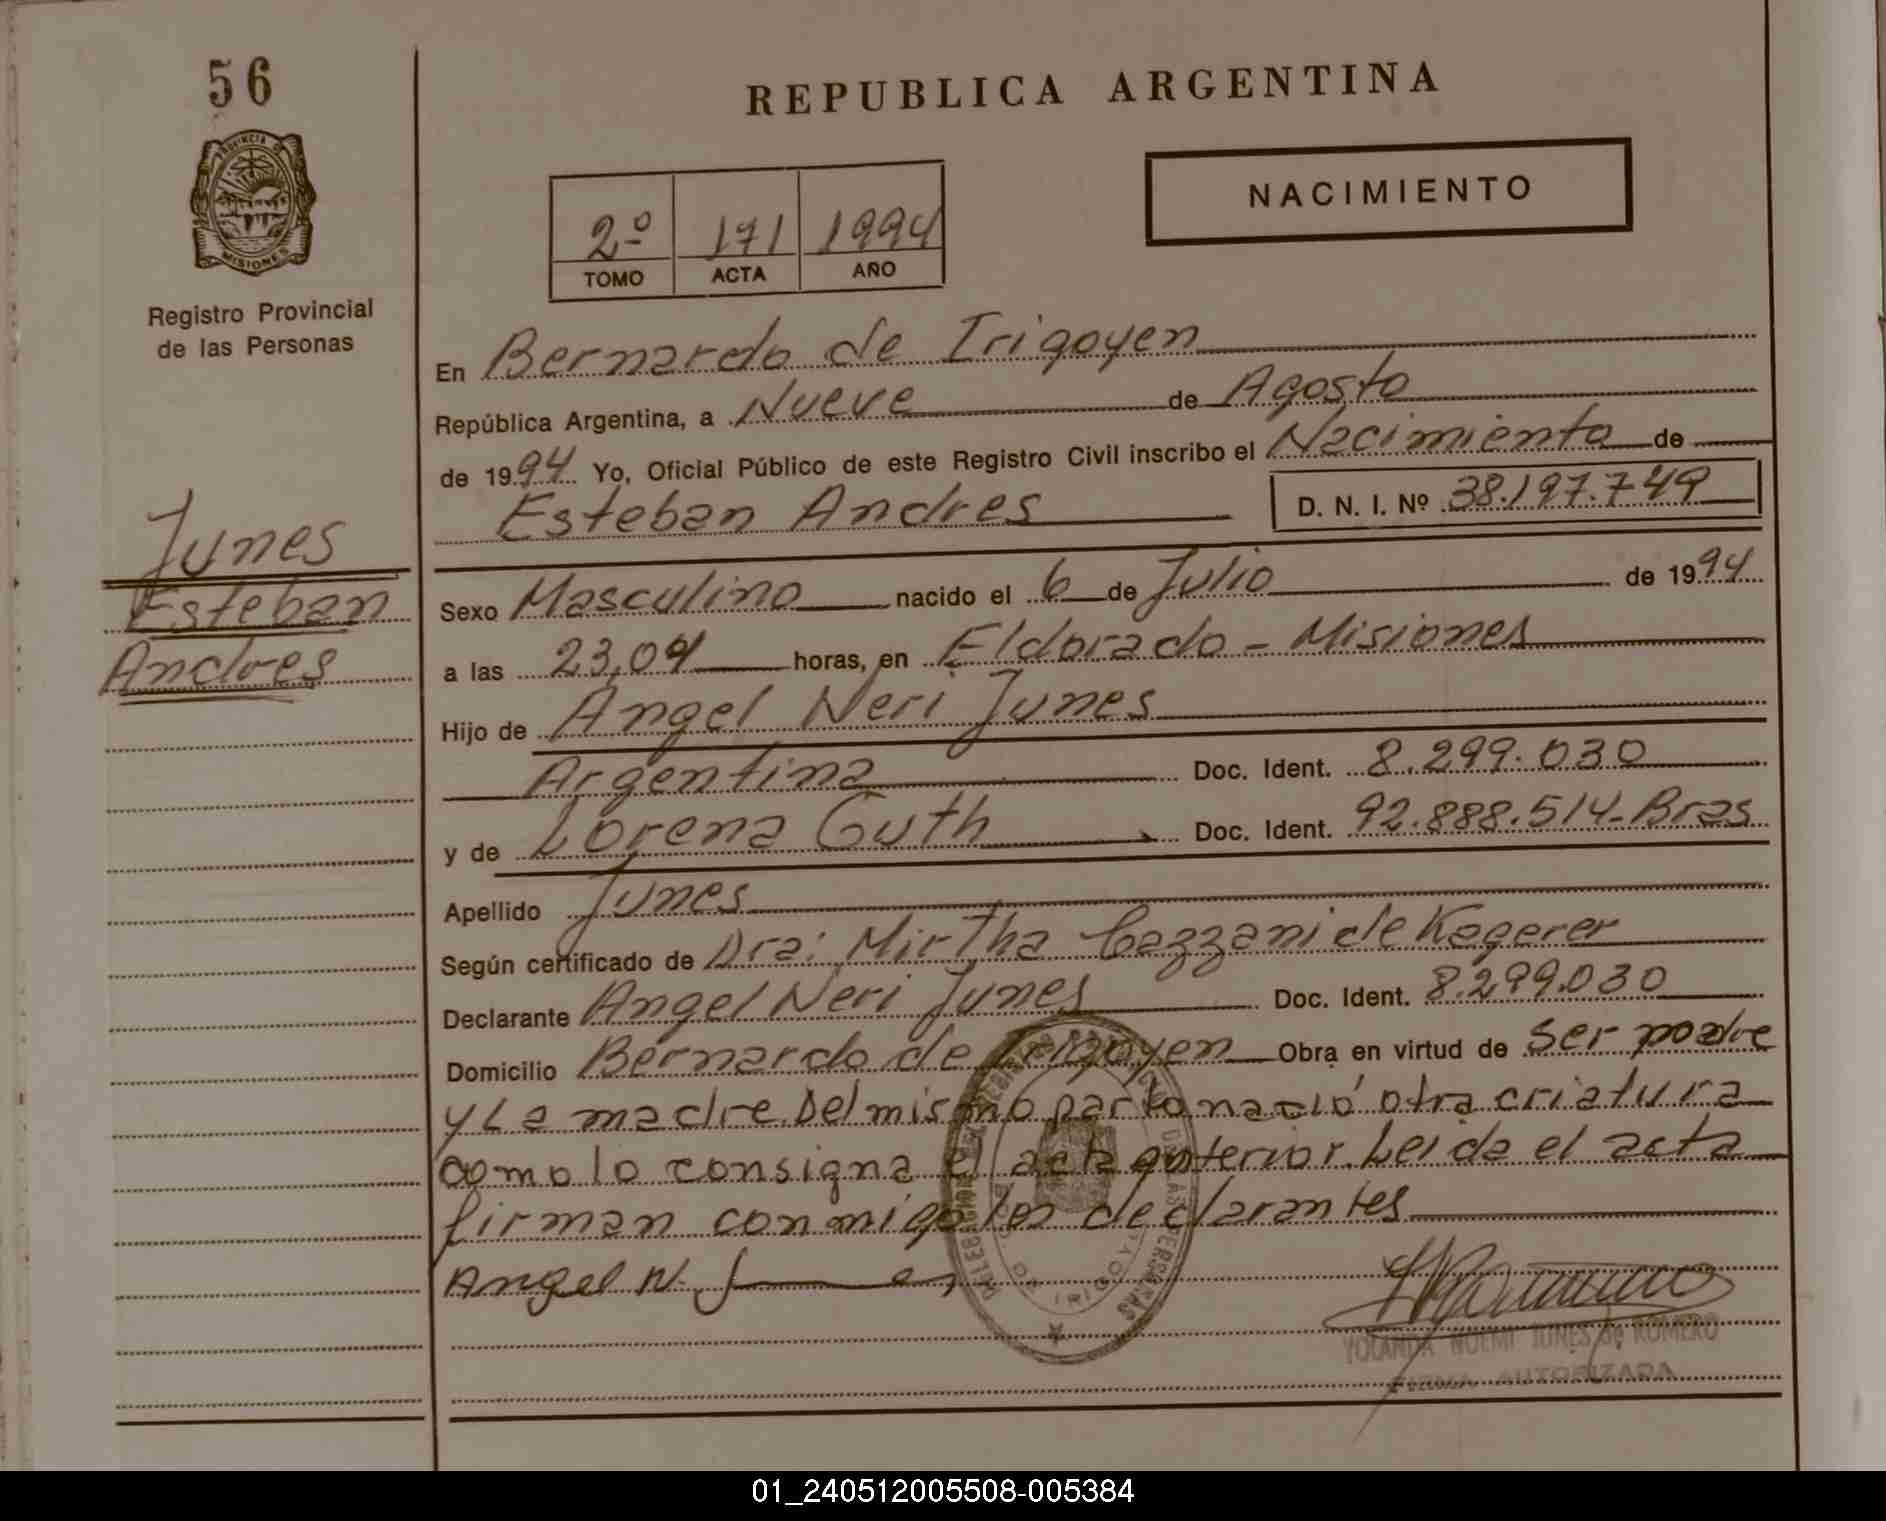 56
PROVINCIA DE
MISIONES
Registro Provincial
de las Personas
Junes
Esteban
Andres
REPUBLICA ARGENTINA
NACIMIENTO
2º 171 1994
TOMO ACTA AÑO
En Bernardo de Irigoyen
República Argentina, a Nueve de Agosto
de 1994 Yo, Oficial Público de este Registro Civil inscribo el Nacimiento de
Esteban Andres D. N. I. Nº 38.197.749
Sexo Masculino nacido el 6 de Julio de 1994
a las 23,04 horas, en Eldorado - Misiones
Hijo de Angel Neri Junes
Argentina Doc. Ident. 8.299.030
y de Lorena Guth Doc. Ident. 92.888.514-Bras
Apellido Junes
Según certificado de Dra: Mirtha Cazzani de Kagerer
Declarante Angel Neri Junes Doc. Ident. 8.299.030
Domicilio Bernardo de Irigoyen Obra en virtud de ser padre
y La madre Del mismo parto nació otra criatura
como lo consigna el acta anterior. Leida el acta
firman conmigo los declarantes
Angel N. J
DE IRIGOYEN
YOLANDA NOEMI JUNES de ROMERO
FIRMA AUTORIZADA
01_240512005508-005384